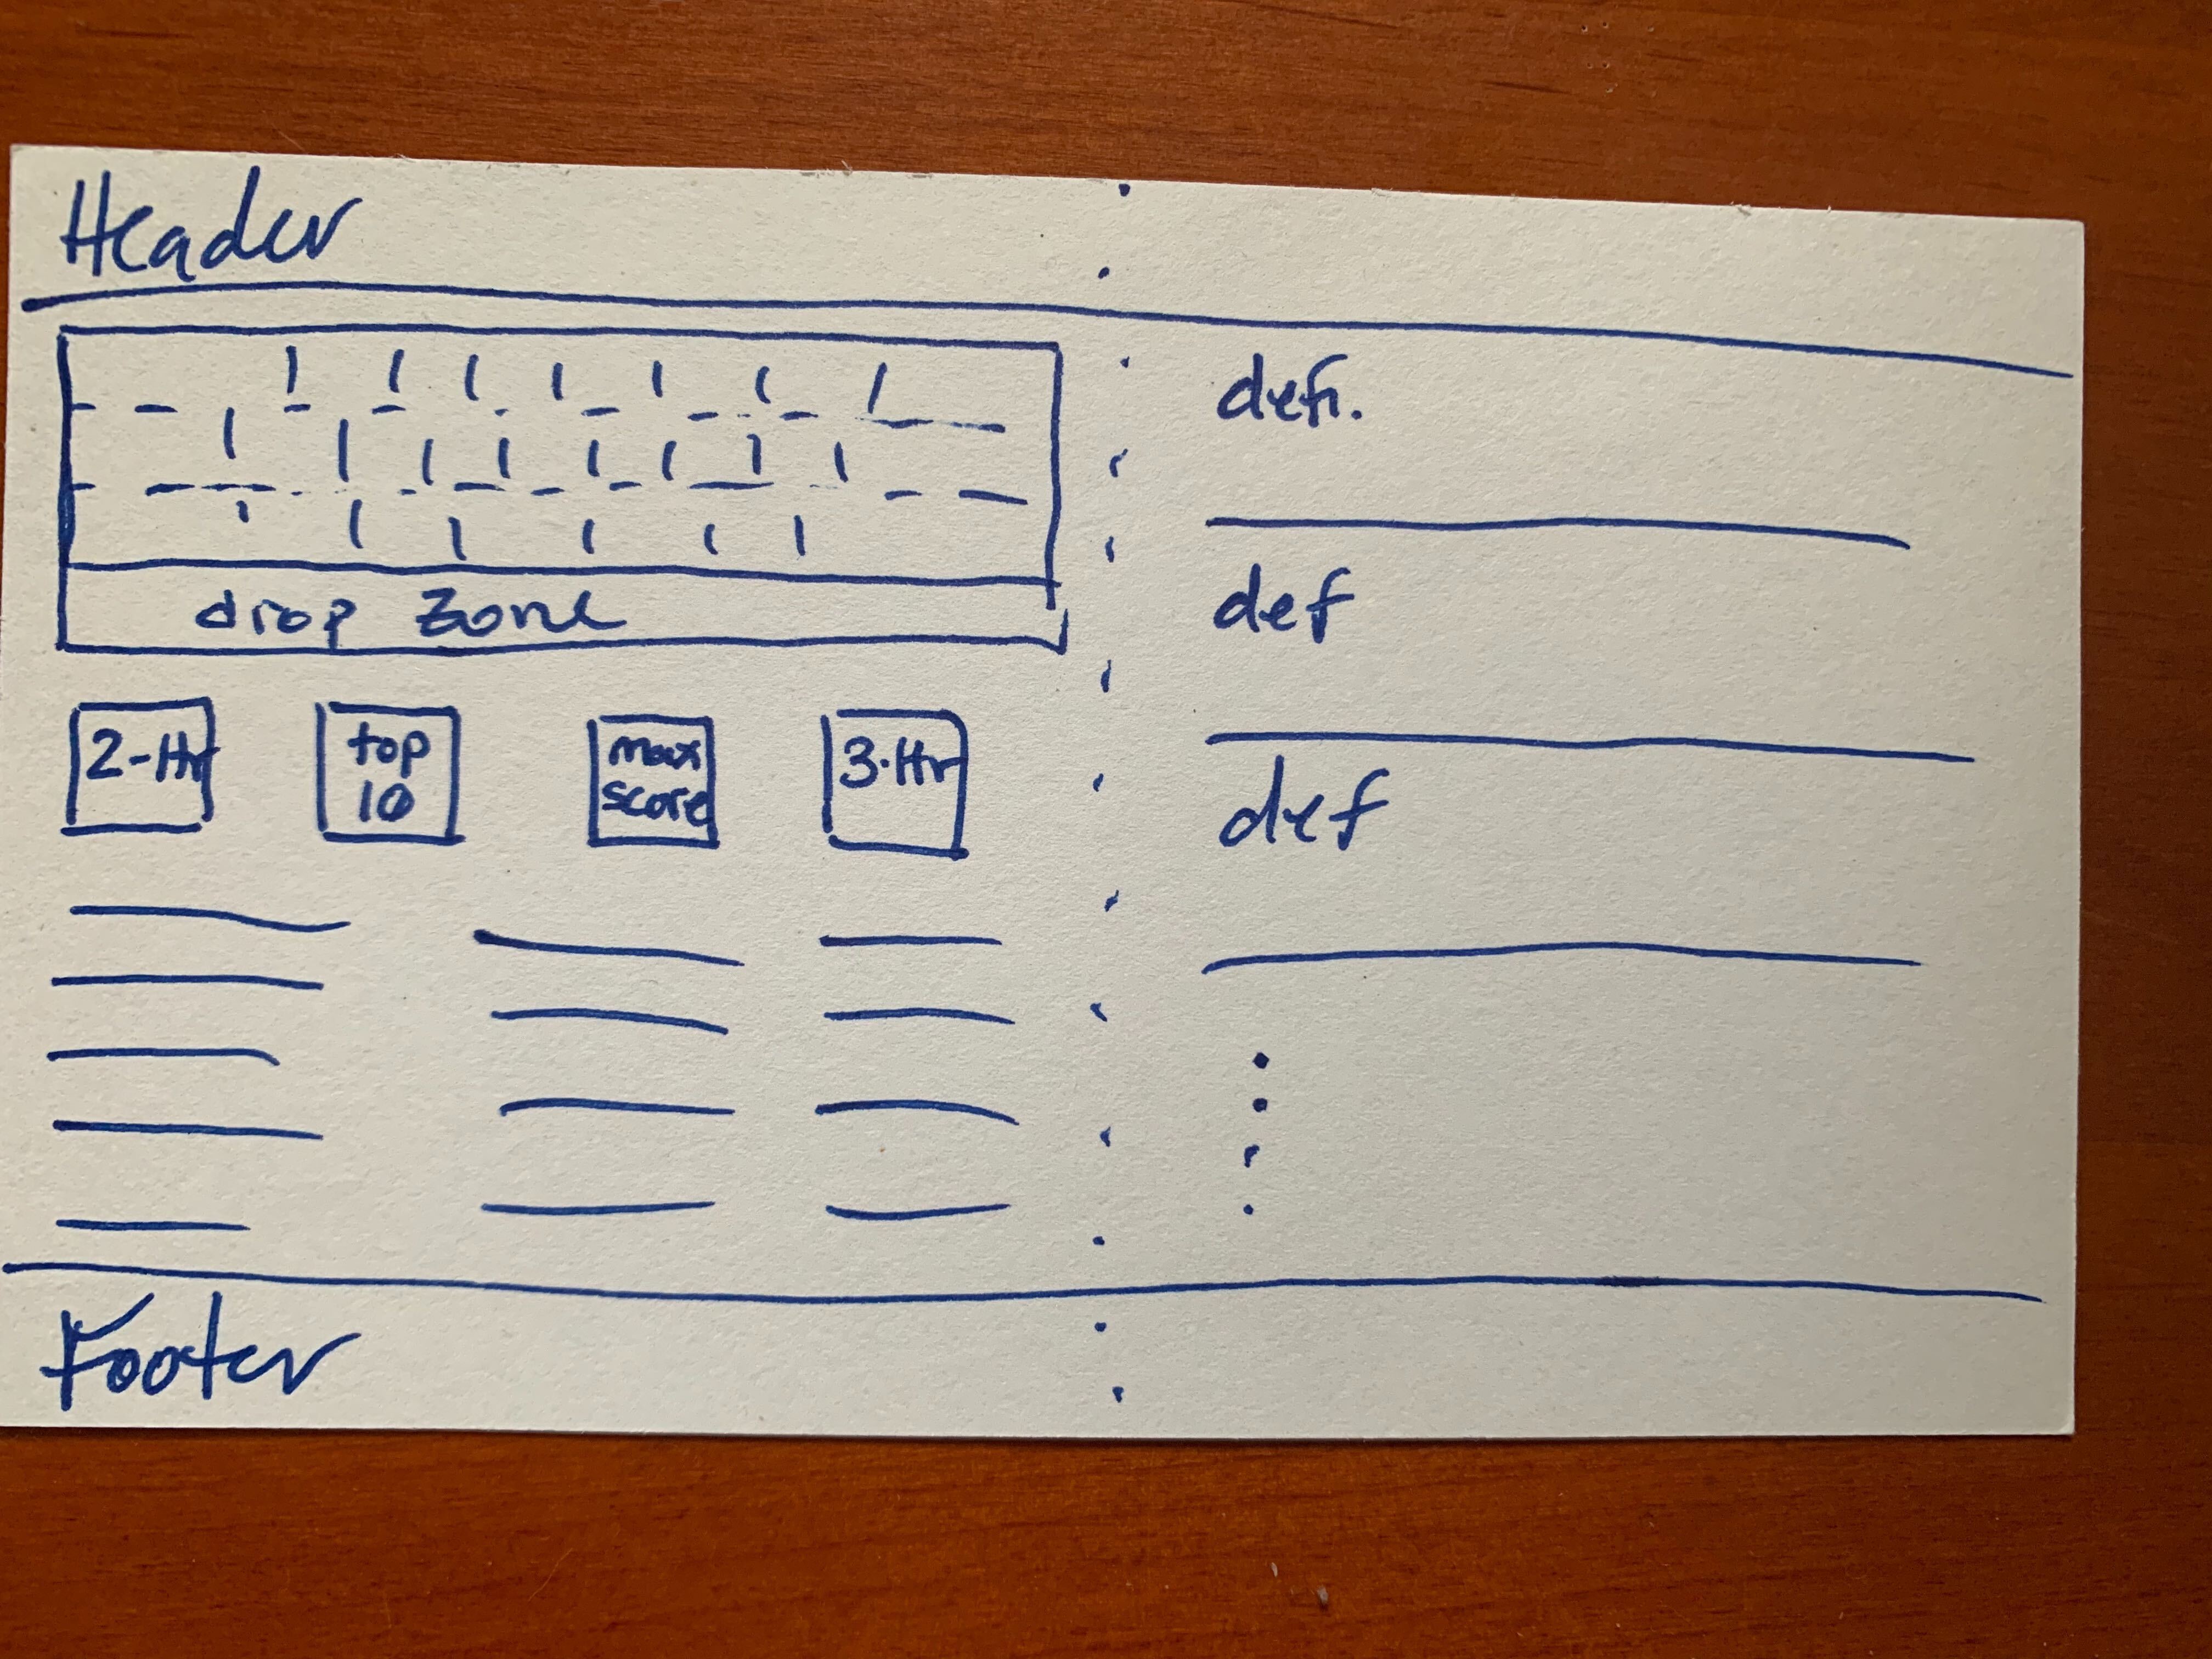 Header
drop zone
2-Hr
top
10
max
score
3-Hr
defn.
def
def
Footer